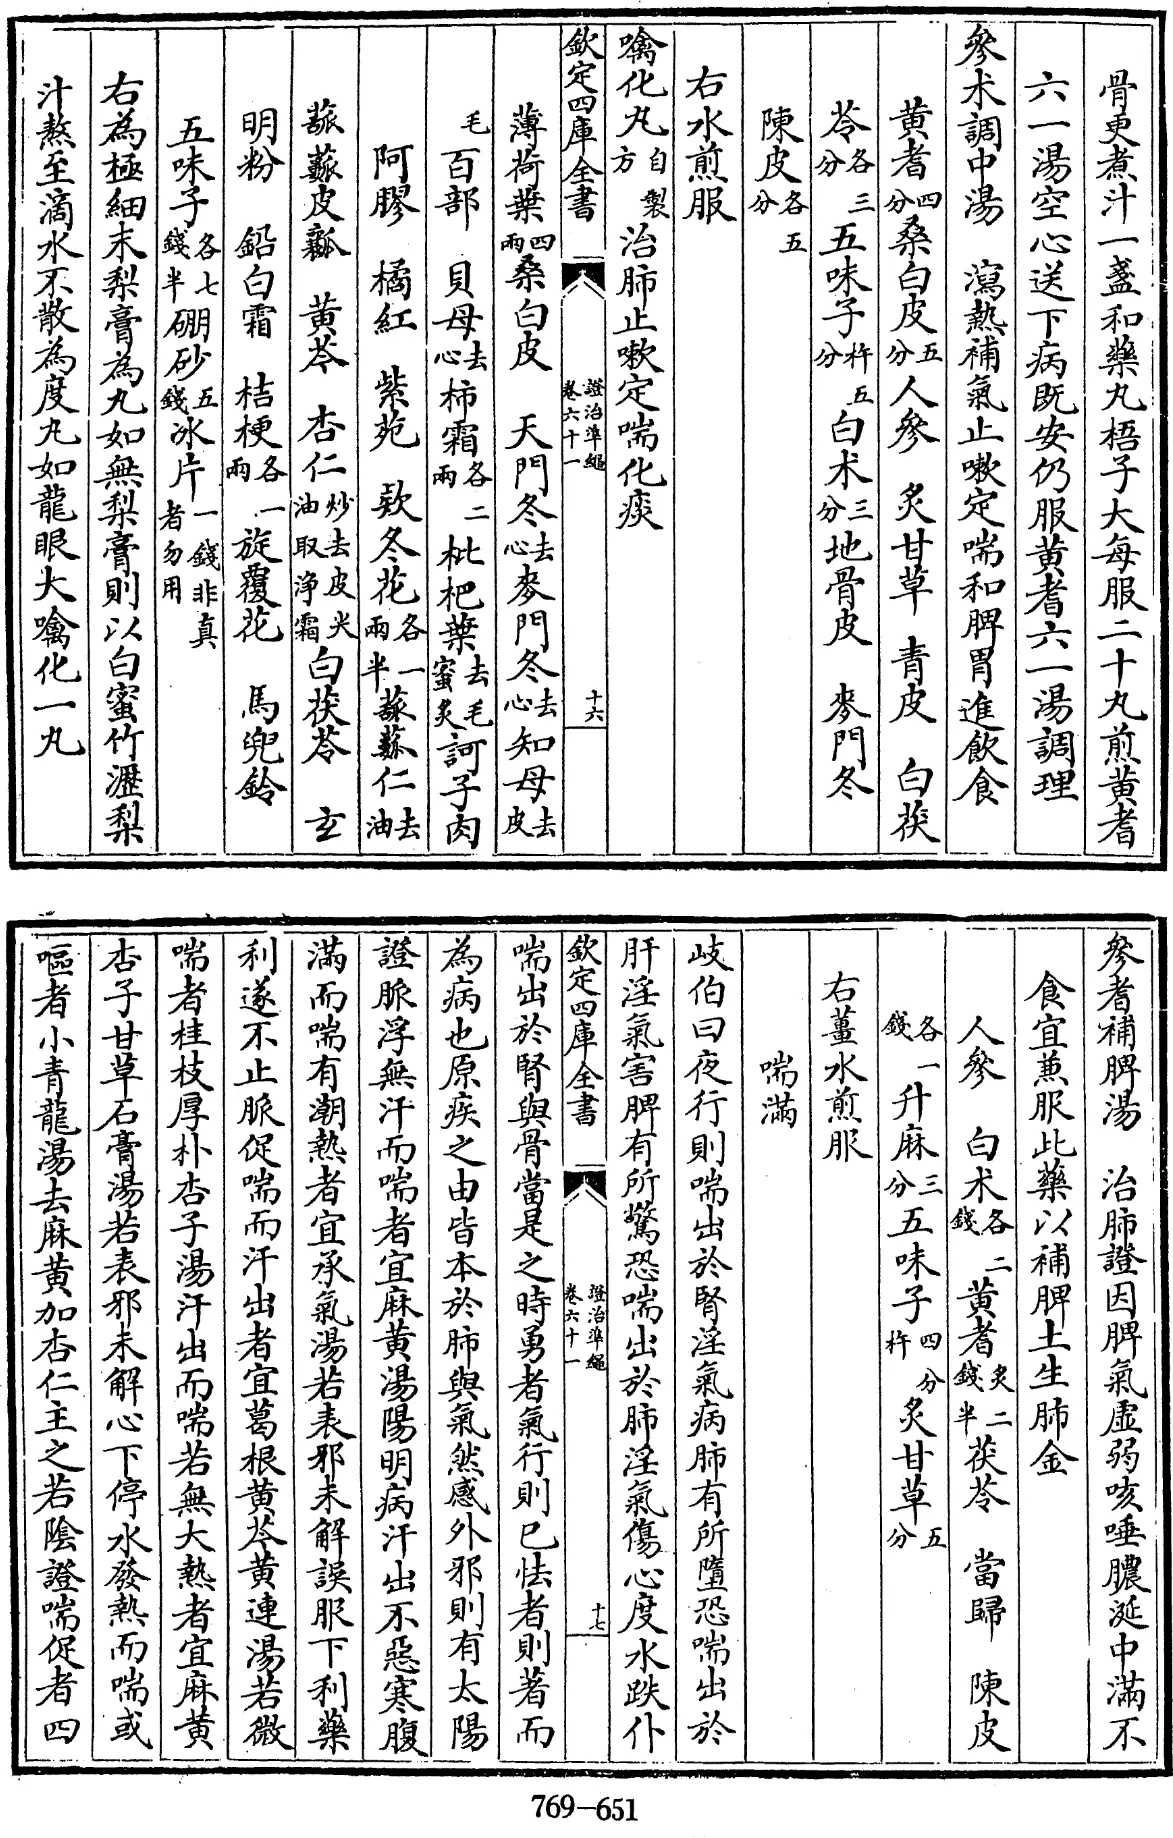 骨更煮汁一盞和藥丸梧子大每服二十丸煎黃耆
六一湯空心送下病既安仍服黃耆六一湯調理
參朮調中湯　瀉熱補氣止嗽定喘和脾胃進飲食
黃耆四分桑白皮五分人參　炙甘草　青皮　白茯
苓各三分五味子杵五分白朮三分地骨皮　麥門冬
陳皮各五分
右水煎服
噙化丸自製方治肺止嗽定喘化痰
欽定四庫全書　證治準繩卷六十一　十六
薄荷葉四兩桑白皮　天門冬去心麥門冬去心知母去皮
毛百部　貝母去心柿霜各二兩枇杷葉去毛蜜炙訶子肉
阿膠　橘紅　紫苑　欵冬花各一兩半蓏蓏仁去油
蓏蓏皮瓤　黃芩　杏仁炒去皮尖油取淨霜白茯苓　玄
明粉　鉛白霜　桔梗各一兩旋覆花　馬兜鈴
五味子各七錢半硼砂五錢冰片一錢非真者勿用
右為極細末梨膏為丸如無梨膏則以白蜜竹瀝梨
汁熬至滴水不散為度丸如龍眼大噙化一丸
參耆補脾湯　治肺證因脾氣虛弱咳唾膿涎中滿不
食宜兼服此藥以補脾土生肺金
人參　白朮各二錢黃耆炙二錢半茯苓　當歸　陳皮
各一錢升麻三分五味子四分杵炙甘草五分
右薑水煎服
喘滿
岐伯曰夜行則喘出於腎淫氣病肺有所墮恐喘出於
肝淫氣害脾有所驚恐喘出於肺淫氣傷心度水跌仆
欽定四庫全書　證治準繩卷六十一　十七
喘出於腎與骨當是之時勇者氣行則已怯者則著而
為病也原疾之由皆本於肺與氣然感外邪則有太陽
證脈浮無汗而喘者宜麻黃湯陽明病汗出不惡寒腹
滿而喘有潮熱者宜承氣湯若表邪未解誤服下利藥
利遂不止脈促喘而汗出者宜葛根黃芩黃連湯若微
喘者桂枝厚朴杏子湯汗出而喘若無大熱者宜麻黃
杏子甘草石膏湯若表邪未解心下停水發熱而喘或
嘔者小青龍湯去麻黃加杏仁主之若陰證喘促者四
769-651